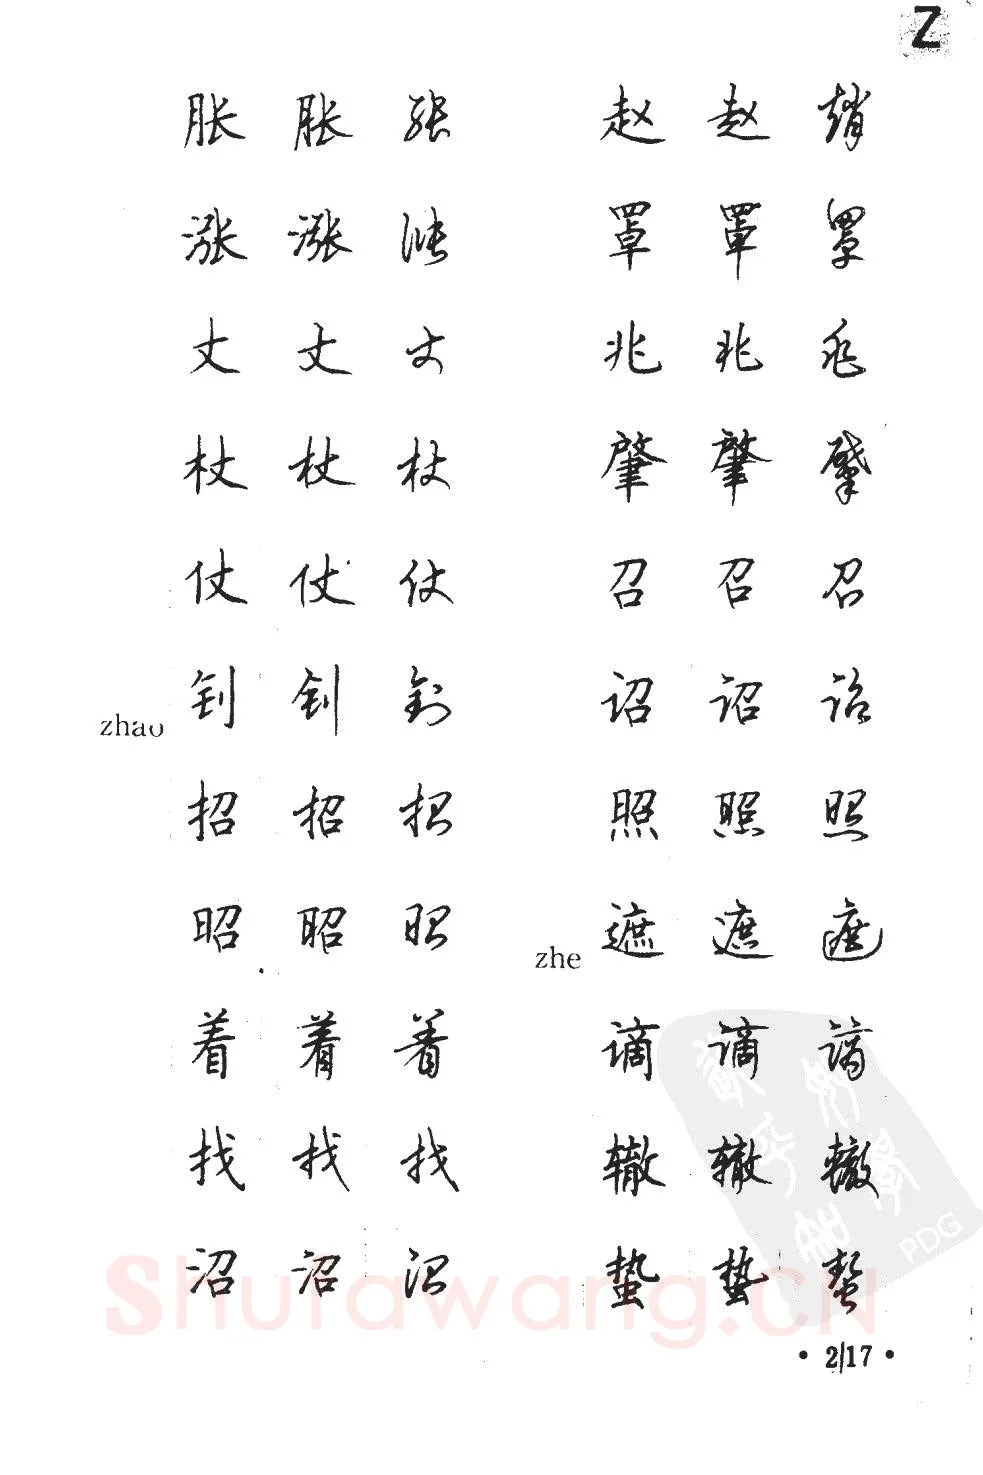 Z
胀 胀 胀
涨 涨 涨
丈 丈 丈
杖 杖 杖
仗 仗 仗
zhao 钊 钊 钊
招 招 招
昭 昭 昭
着 着 着
找 找 找
沼 沼 沼
赵 赵 趙
罩 罩 罩
兆 兆 兆
肇 肇 肇
召 召 召
诏 诏 诏
照 照 照
zhe 遮 遮 遮
谪 谪 谪
辙 辙 辙
蛰 蛰 蛰
Shufawang.CN
PDG
• 217 •